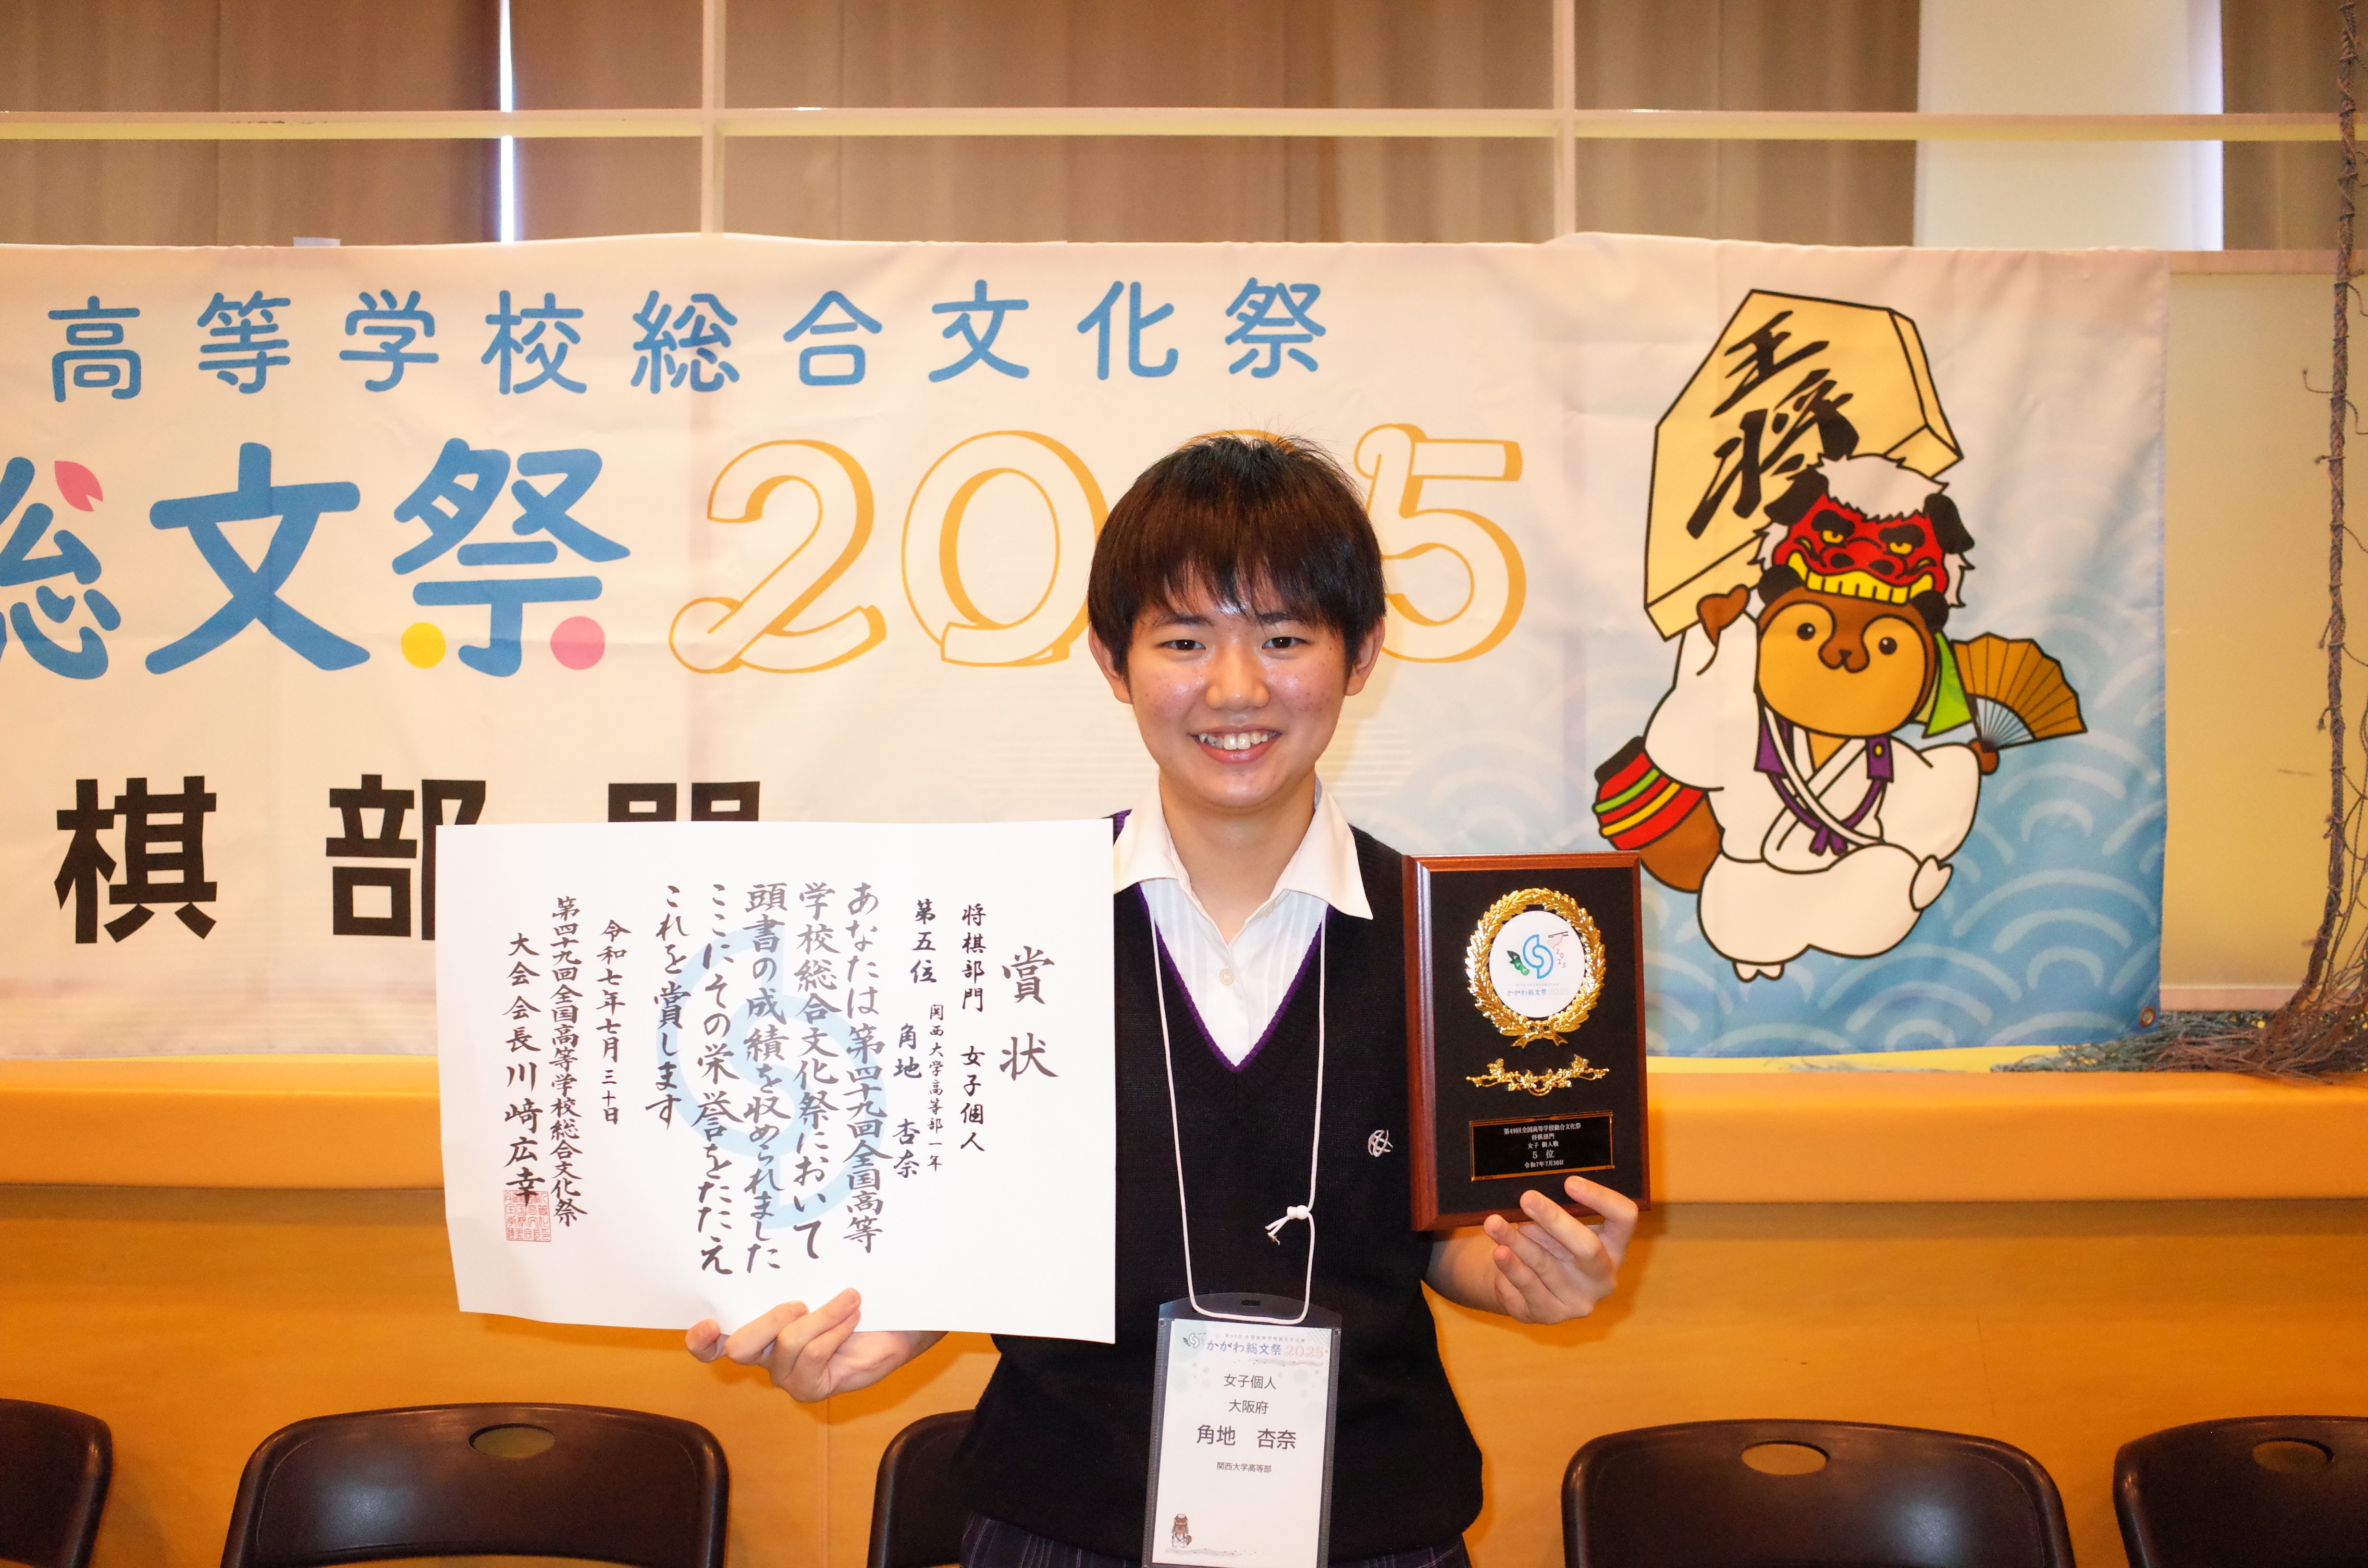 高等学校総合文化祭
総文祭2025
棋部門
王将
賞状
将棋部門 女子個人
第五位 関西大学高等部一年
角地 杏奈
あなたは第四十九回全国高等
学校総合文化祭において
頭書の成績を収められました
ここにその栄誉をたたえ
これを賞します
令和七年七月三十日
第四十九回全国高等学校総合文化祭
大会会長 川﨑広幸
2025
かがわ総文祭2025
第49回全国高等学校総合文化祭
将棋部門
女子 個人戦
5 位
令和7年7月30日
かがわ総文祭2025
女子個人
大阪府
角地 杏奈
関西大学高等部